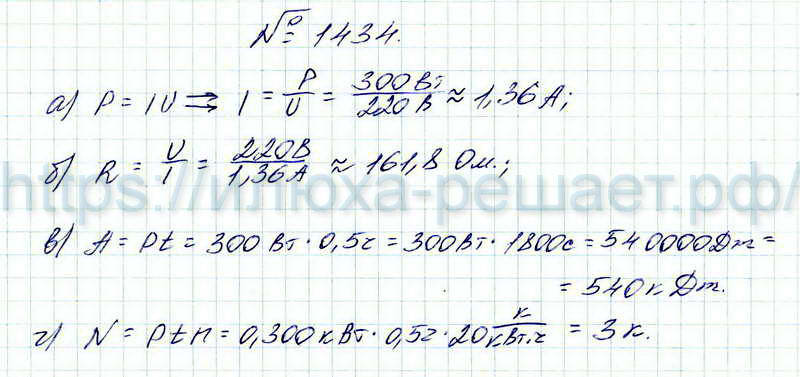 № 1434.
а) P = IU ⇒ I = P/U = 300Вт/220В ≈ 1,36А;
б) R = U/I = 220В/1,36А ≈ 161,8 Ом.;
https://илюха-решает.рф/
в) A = Pt = 300 Вт · 0,5ч = 300Вт · 1800с = 540000Дж =
= 540кДж.
г) N = Ptn = 0,300кВт · 0,5ч · 20 к/кВт.ч = 3к.